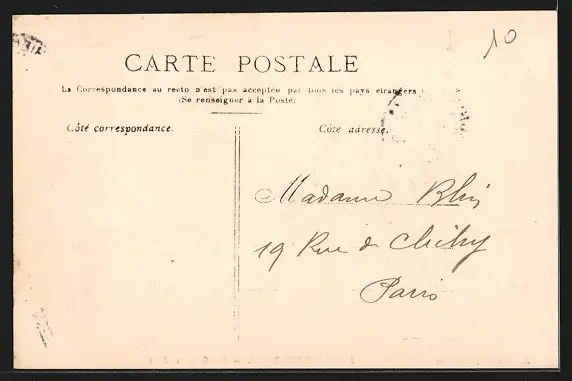 10
CARTE POSTALE
La Correspondance au recto n'est pas acceptée par tous les pays étrangers
(Se renseigner à la Poste)
Côté correspondance.
Côté adresse.
Madame
19 Rue de Clichy
Paris